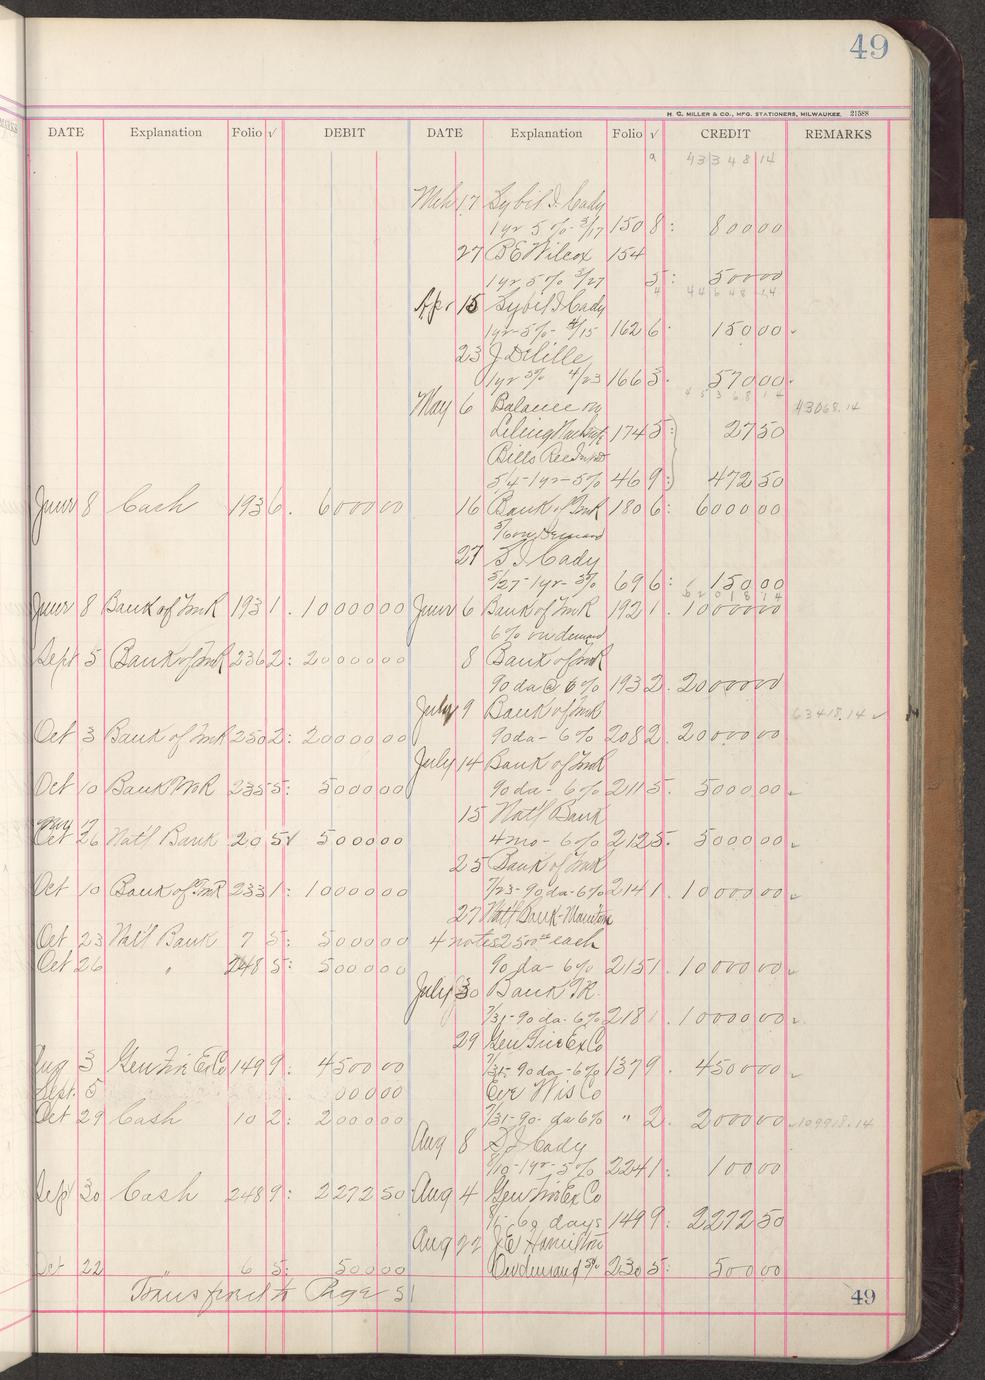 49
H. C. MILLER & CO., MFG. STATIONERS, MILWAUKEE. 21588
DATE Explanation Folio √ DEBIT DATE Explanation Folio √ CREDIT REMARKS
43348 14
Mch 17 Sybil I. Cady
1 yr 5% 3/17 150 8: 800 00
27 B E Wilcox 154
1 yr 5% 3/27 5: 500 00
44648.14
Apr 15 Sybil I Cady
1 yr-5%- 4/15 162 6. 150 00
23 J. Delille
1 yr 3% 4/23 166 3. 570 00
45368 14
May 6 Balance on 43068.14
174 5: 27 50
Bills Rec
5/4-1yr-5% 46 9: 472 50
June 8 Cash 193 6. 6000 00 16 Bank of TwR 180 6: 6000 00
5/16 on Demand
27 S I Cady
5/27-1yr-3% 69 6: 150 00
62018 14
June 8 Bank of TwR 193 1. 10000 00 June 6 Bank of TwR 192 1. 10000 00
6% on demand
Sept 5 Bank of TwR 236 2: 20000 00 8 Bank of TwR
90 da @ 6% 193 2. 20000 00
July 9 Bank of TwR 63418.14
Oct 3 Bank of TwR 250 2: 20000 00 90 da - 6% 208 2. 20000 00
July 14 Bank of TwR
Oct 10 Bank TwR 235 5: 5000 00 90 da - 6% 211 5. 5000 00
15 Nat'l Bank
Oct 26 Nat'l Bank 20 5 √ 5000 00 4 mo - 6% 212 5. 5000 00
25 Bank of TwR
Oct 10 Bank of TwR 233 1: 10000 00 7/23-90 da-6% 214 1. 10000 00
27 Nat'l Bank-Manitow
Oct 23 Nat'l Bank 7 5: 5000 00 4 notes 2500 00 each
Oct 26 " 248 5: 5000 00 90 da - 6% 215 1. 10000 00
July 30 Bank T.R.
7/31-90 da-6% 218 1. 10000 00
29 Gen Fire Ex Co
Aug 3 Gen Fire Ex Co 149 9: 4500 00 7/31-90 da-6% 137 9. 4500 00
Sept. 5 000 00 Eve Wis Co
Oct 29 Cash 10 2: 2000 00 7/31-90-da 6% " 2. 2000 00 109918.14
Aug 8 S I Cady
8/10-1yr-5% 224 1: 100 00
Sept 30 Cash 248 9: 2272 50 Aug 4 Gen Fire Ex Co
60 days 149 9: 2272 50
Aug 22 J.E Hamilton
Oct 22 " 6 5: 500 00 On demand 5% 230 5: 500 00
Transferred to Page 51 49